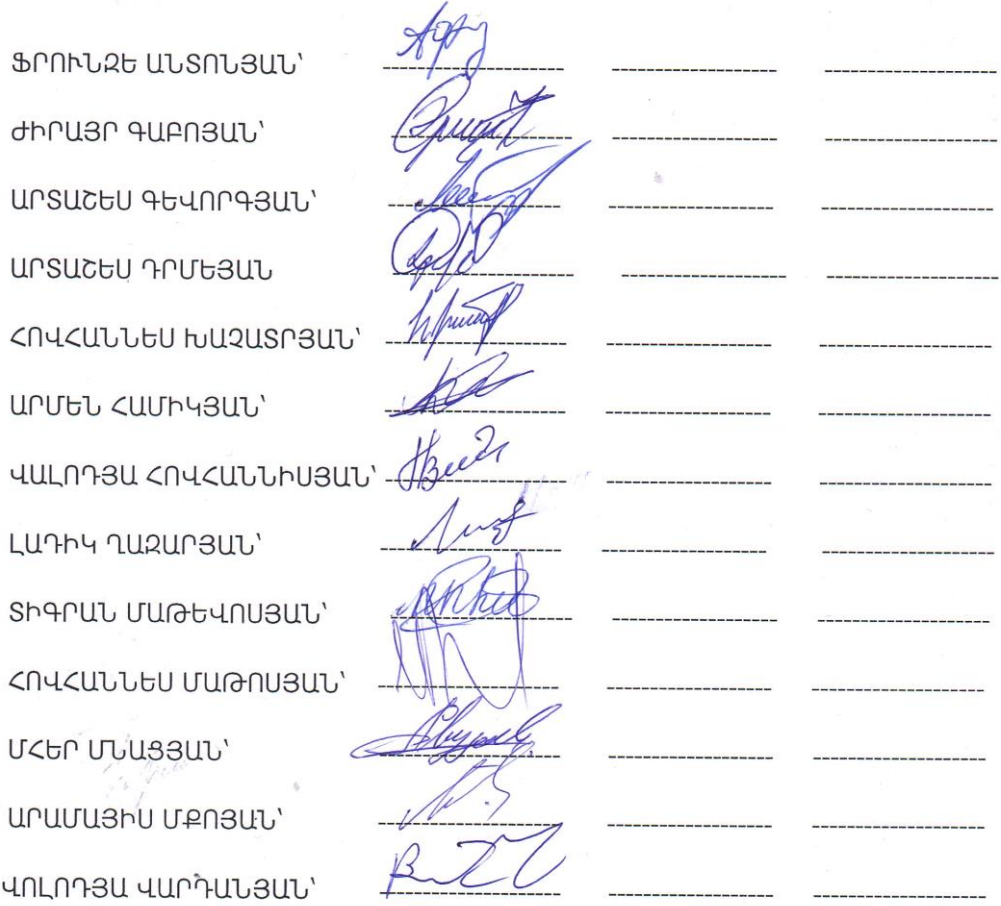 ՖՐՈՒՆԶԵ ԱՆՏՈՆՅԱՆ՝
ԺԻՐԱՅՐ ԳԱԲՈՅԱՆ՝
ԱՐՏԱՇԵՍ ԳԵՎՈՐԳՅԱՆ՝
ԱՐՏԱՇԵՍ ԴՐՄԵՅԱՆ
ՀՈՎՀԱՆՆԵՍ ԽԱՉԱՏՐՅԱՆ՝
ԱՐՄԵՆ ՀԱՄԻԿՅԱՆ՝
ՎԱԼՈԴՅԱ ՀՈՎՀԱՆՆԻՍՅԱՆ՝
ԼԱԴԻԿ ՂԱԶԱՐՅԱՆ՝
ՏԻԳՐԱՆ ՄԱԹԵՎՈՍՅԱՆ՝
ՀՈՎՀԱՆՆԵՍ ՄԱԹՈՍՅԱՆ՝
ՄՀԵՐ ՄՆԱՑՅԱՆ՝
ԱՐԱՄԱՅԻՍ ՄՔՈՅԱՆ՝
ՎՈԼՈԴՅԱ ՎԱՐԴԱՆՅԱՆ՝